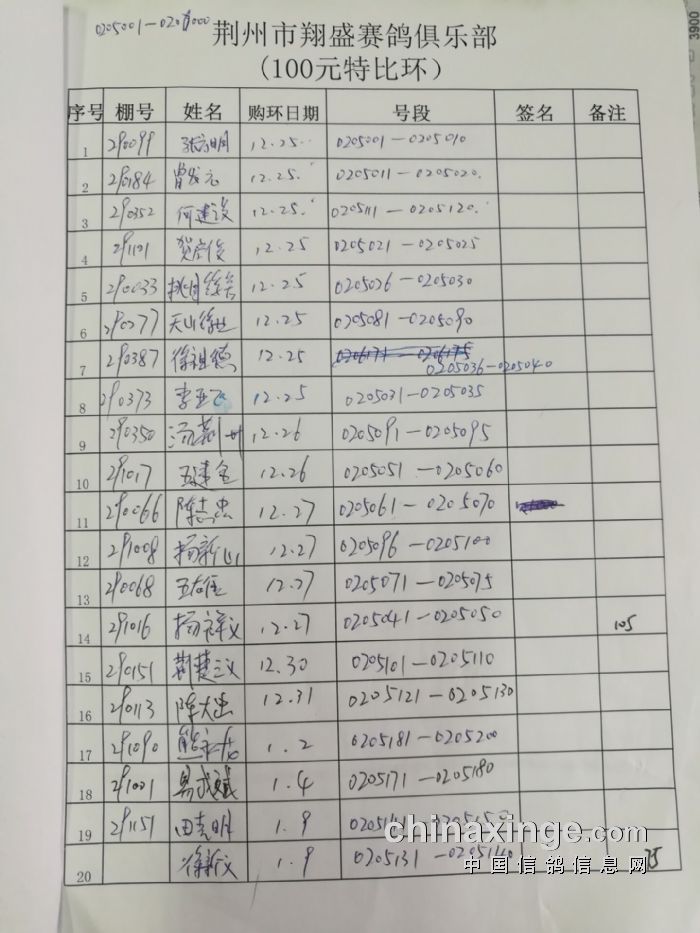 3900
0205001-0206000
荆州市翔盛赛鸽俱乐部
(100元特比环)
序号 棚号 姓名 购环日期 号段 签名 备注
1 290099 12.25 0205001-0205010
2 290184 曾发元 12.25. 0205011-0205020.
3 290352 何建设 12.25. 0205111-0205120.
4 291101 12.25 0205021-0205025
5 290033 12.25 0205026-0205030
6 290277 12.25 0205081-0205090
7 290387 徐祖德 12.25 0205036-0205040
8 290373 李亚飞 12.25 0205031-0205035
9 290350 汤荆州 12.26 0205091-0205095
10 291017 12.26 0205051-0205060
11 290066 陈志忠 12.27 0205061-0205070
12 291008 12.27 0205096-0205100
13 290068 12.27 0205071-0205075
14 291016 杨祥义 12.27 0205041-0205050 105
15 290151 荆楚三义 12.30 0205101-0205110
16 290113 陈大忠 12.31 0205121-0205130
17 291090 1.2 0205181-0205200
18 291001 易成斌 1.4 0205171-0205180
19 291151 田克明 1.9
20 徐新文 1.9 0205131-0205140 75
chinaxinge.com
中国信鸽信息网